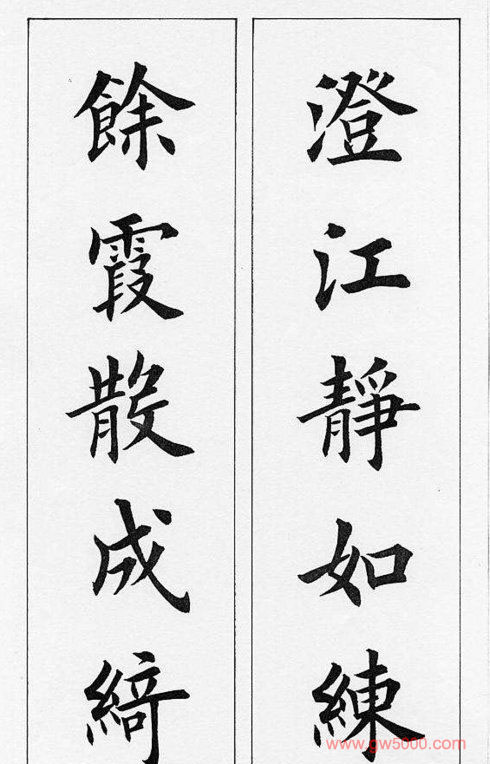 澄江靜如練
餘霞散成綺
www.gw5000.com